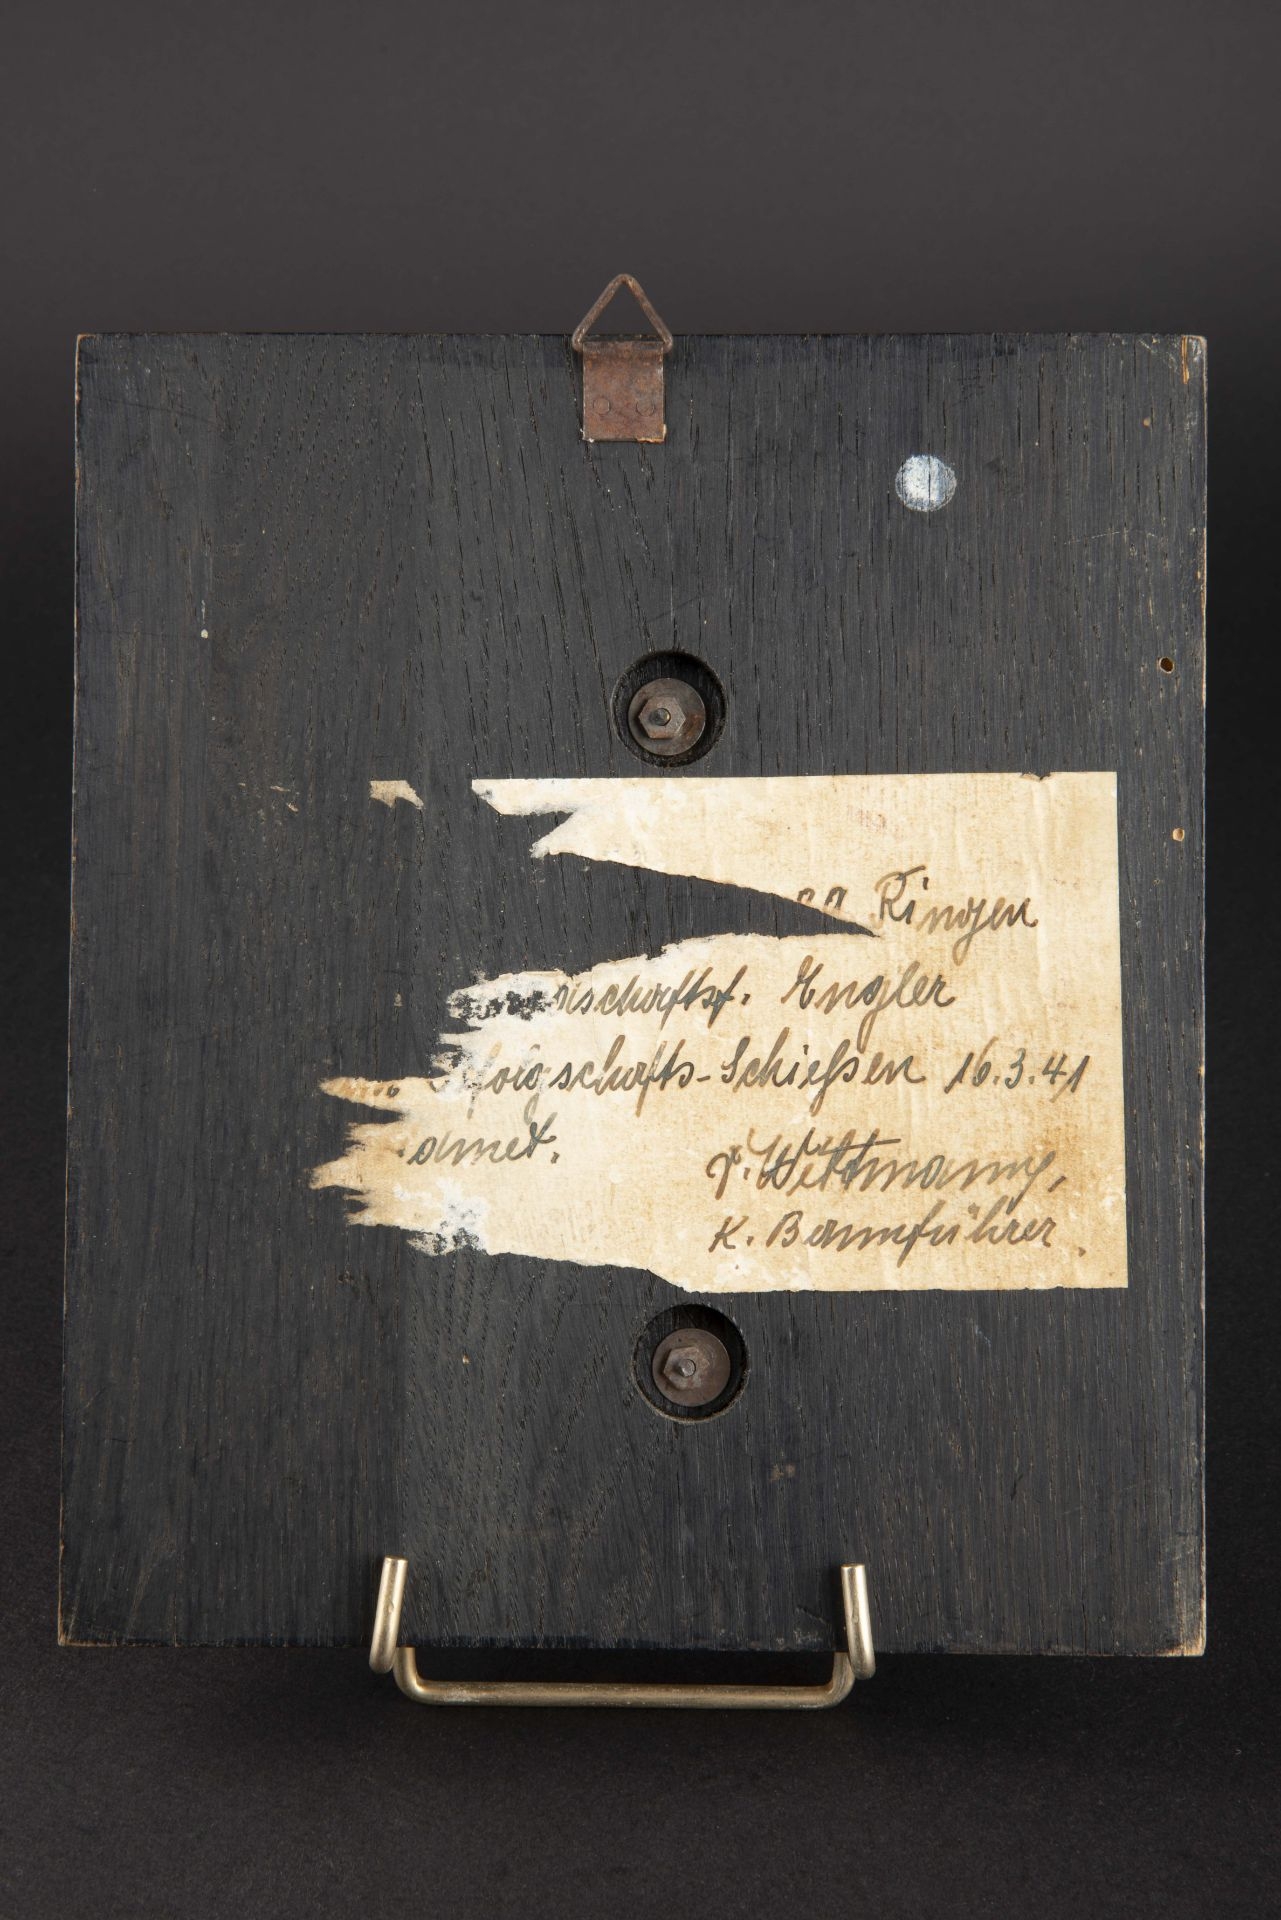 Ringen
schaftsf. Engler
folgschafts-Schießen 16.3.41
amet.
Wittmann,
K. Bannführer.